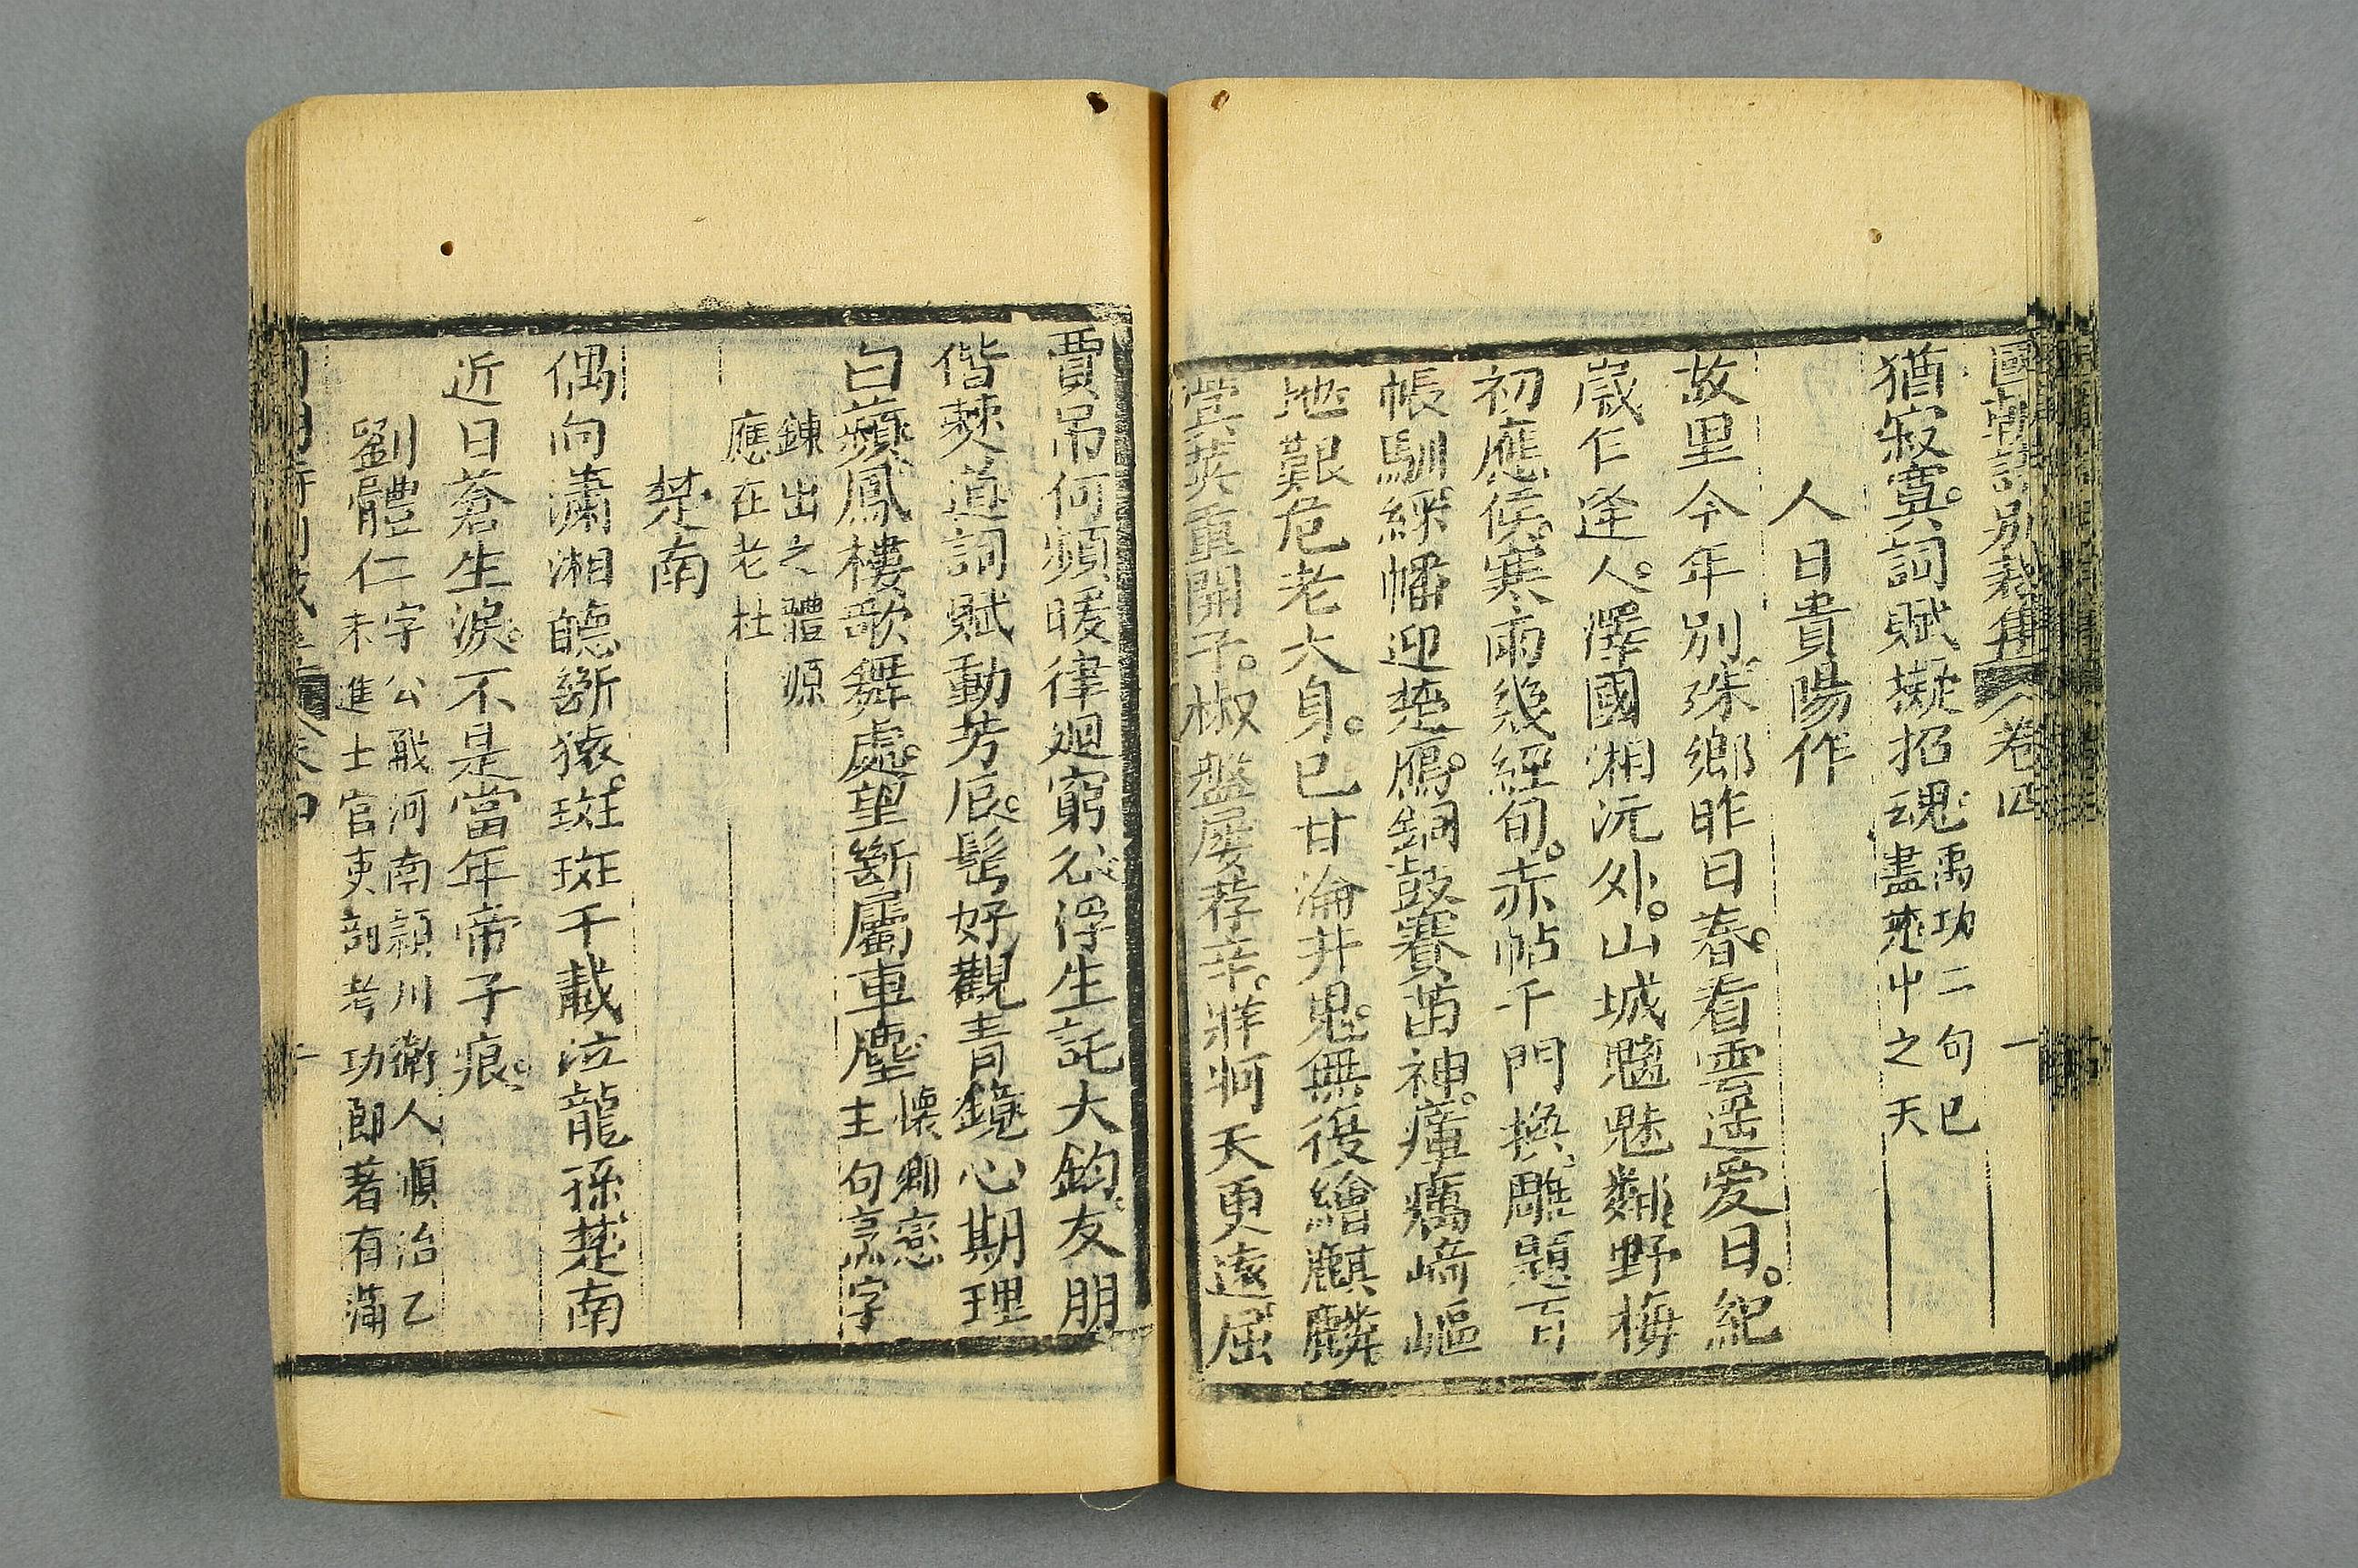 國朝詩別裁集 卷四 一
猶寂寞詞賦擬招魂禹功二句已
盡楚中之天
人日貴陽作
故里今年別殊鄉昨日春看雲遥愛日紀
歲乍逢人澤國湘沅外山城魑魅鄰野梅
初應候寒雨幾經旬赤帖千門換雕題百
帳馴綵幡迎楚鴈銅鼓賽苗神瘴癘崎嶇
地艱危老大身已甘淪井鬼無復繪麒麟
蓂莢重開子椒盤屢荐辛牂牁天更遠屈
賈吊何頻暖律廻窮谷浮生託大鈞友朋
偕僰道詞賦動芳辰髩好觀青鏡心期理
白蘋鳳樓歌舞處望斷屬車塵懷鄉戀
主句烹字
鍊出之體源
應在老杜
楚南
偶向瀟湘聽斷猿斑斑千載泣龍孫楚南
近日蒼生淚不是當年帝子痕
劉體仁字公㦷河南潁川衛人順治乙
未進士官吏部考功郎著有蒲